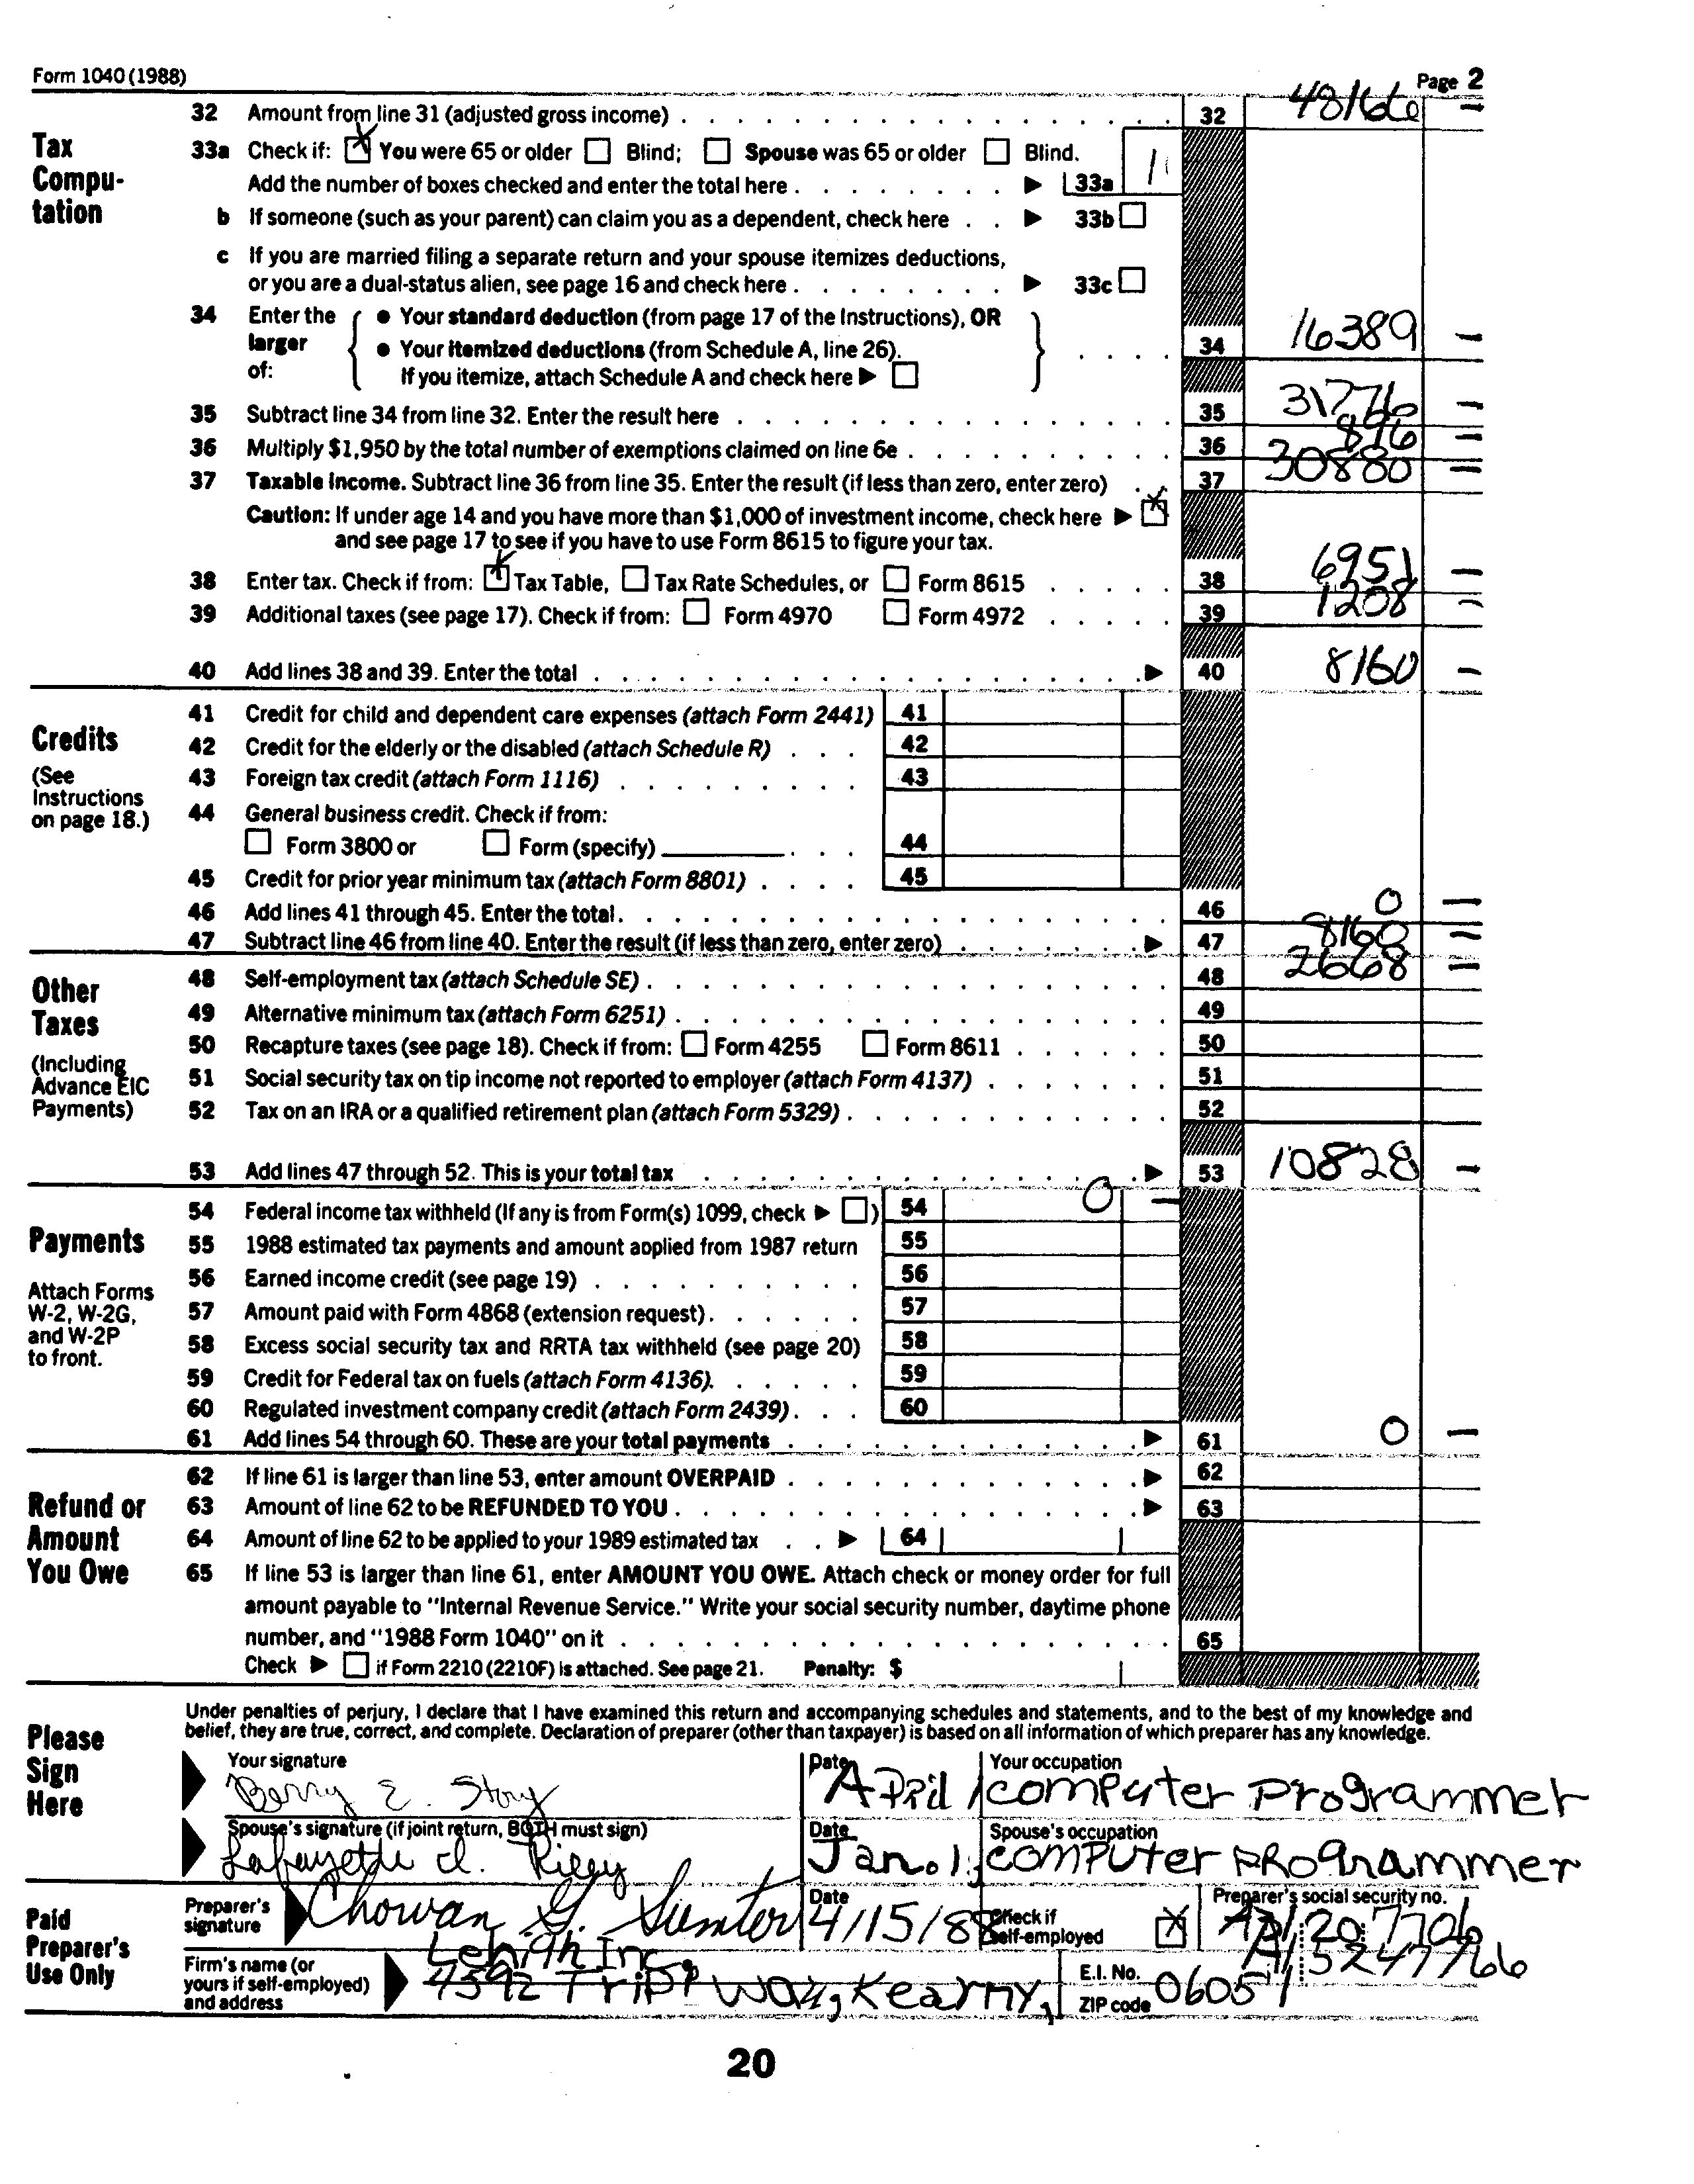 Form 1040 (1988) Page 2
Tax Computation
32 Amount from line 31 (adjusted gross income) 32 48166 —
33a Check if: You were 65 or older Blind; Spouse was 65 or older Blind.
Add the number of boxes checked and enter the total here 33a 1
b If someone (such as your parent) can claim you as a dependent, check here 33b
c If you are married filing a separate return and your spouse itemizes deductions,
or you are a dual-status alien, see page 16 and check here 33c
34 Enter the larger of: • Your standard deduction (from page 17 of the Instructions), OR
• Your itemized deductions (from Schedule A, line 26). 34 16389 —
If you itemize, attach Schedule A and check here
35 Subtract line 34 from line 32. Enter the result here 35 31776 —
36 Multiply $1,950 by the total number of exemptions claimed on line 6e 36 896 —
37 Taxable income. Subtract line 36 from line 35. Enter the result (if less than zero, enter zero) 37 30880 —
Caution: If under age 14 and you have more than $1,000 of investment income, check here
and see page 17 to see if you have to use Form 8615 to figure your tax.
38 Enter tax. Check if from: Tax Table, Tax Rate Schedules, or Form 8615 38 6951 —
39 Additional taxes (see page 17). Check if from: Form 4970 Form 4972 39 1208 —
40 Add lines 38 and 39. Enter the total 40 8160 —
Credits
(See Instructions on page 18.)
41 Credit for child and dependent care expenses (attach Form 2441) 41
42 Credit for the elderly or the disabled (attach Schedule R) 42
43 Foreign tax credit (attach Form 1116) 43
44 General business credit. Check if from:
Form 3800 or Form (specify) 44
45 Credit for prior year minimum tax (attach Form 8801) 45
46 Add lines 41 through 45. Enter the total 46 0 —
47 Subtract line 46 from line 40. Enter the result (if less than zero, enter zero) 47 8160 —
Other Taxes
(Including Advance EIC Payments)
48 Self-employment tax (attach Schedule SE) 48 2668 —
49 Alternative minimum tax (attach Form 6251) 49
50 Recapture taxes (see page 18). Check if from: Form 4255 Form 8611 50
51 Social security tax on tip income not reported to employer (attach Form 4137) 51
52 Tax on an IRA or a qualified retirement plan (attach Form 5329) 52
53 Add lines 47 through 52. This is your total tax 53 10828 —
Payments
Attach Forms W-2, W-2G, and W-2P to front.
54 Federal income tax withheld (If any is from Form(s) 1099, check ) 54 0 —
55 1988 estimated tax payments and amount applied from 1987 return 55
56 Earned income credit (see page 19) 56
57 Amount paid with Form 4868 (extension request) 57
58 Excess social security tax and RRTA tax withheld (see page 20) 58
59 Credit for Federal tax on fuels (attach Form 4136) 59
60 Regulated investment company credit (attach Form 2439) 60
61 Add lines 54 through 60. These are your total payments 61 0 —
Refund or Amount You Owe
62 If line 61 is larger than line 53, enter amount OVERPAID 62
63 Amount of line 62 to be REFUNDED TO YOU 63
64 Amount of line 62 to be applied to your 1989 estimated tax 64
65 If line 53 is larger than line 61, enter AMOUNT YOU OWE. Attach check or money order for full
amount payable to "Internal Revenue Service." Write your social security number, daytime phone
number, and "1988 Form 1040" on it 65
Check if Form 2210 (2210F) is attached. See page 21. Penalty: $
Please Sign Here
Under penalties of perjury, I declare that I have examined this return and accompanying schedules and statements, and to the best of my knowledge and
belief, they are true, correct, and complete. Declaration of preparer (other than taxpayer) is based on all information of which preparer has any knowledge.
Your signature Date Your occupation
Berry E. Story April 1 computer programmer
Spouse's signature (if joint return, BOTH must sign) Date Spouse's occupation
Lafayette d. Riley Jan. 1, computer programmer
Paid Preparer's Use Only
Preparer's signature Chowan G. Sumter Date 4/15/88 Check if self-employed X Preparer's social security no. 20 7706
Firm's name (or yours if self-employed) and address Lehigh Inc. E.I. No. 5247766
4592 Tripp Way, Kearny, ZIP code 06051
20